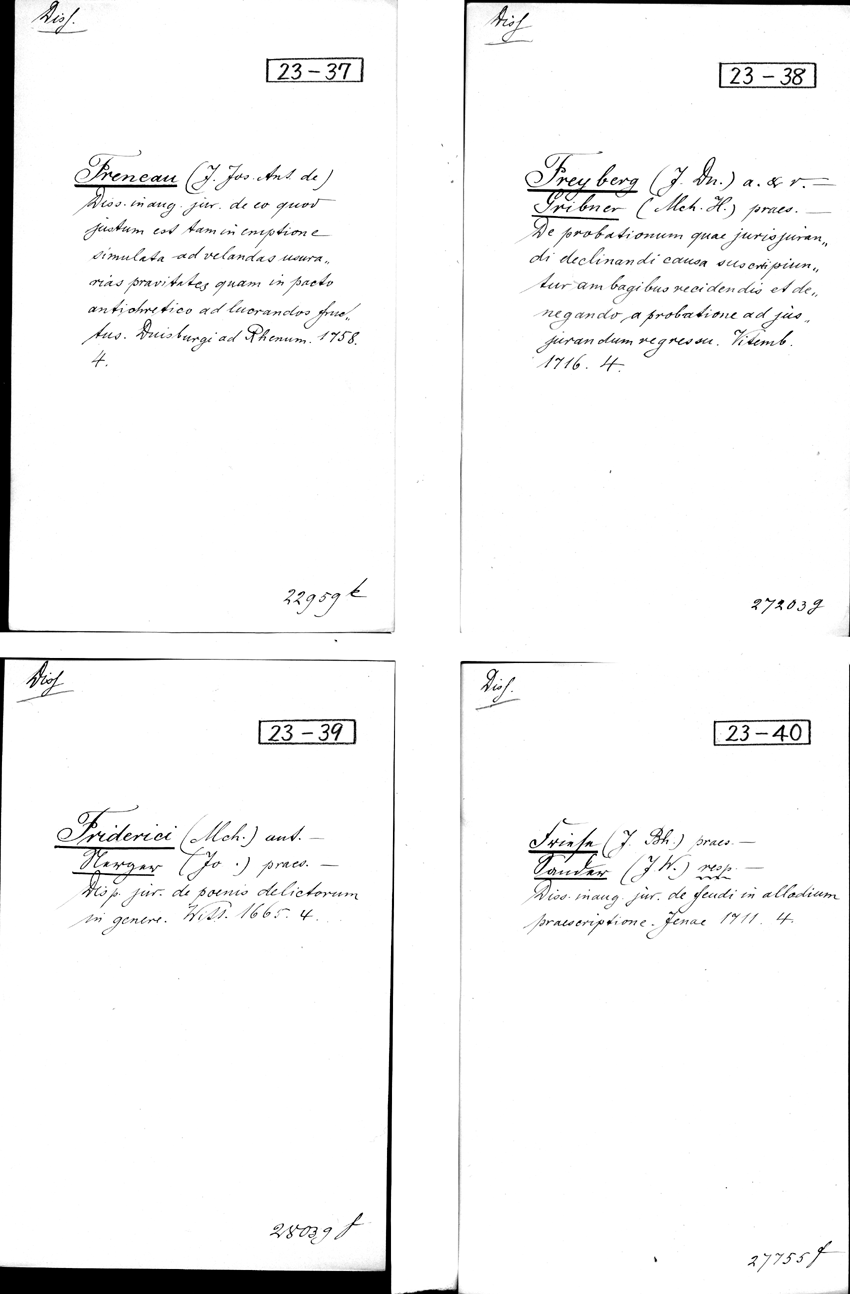 Diss.
23-37
Freneau (J. Jos. Ant. de)
Diss. inaug. jur. de eo quod
justum est tam in emptione
simulata ad velandas usura„
rias pravitates quam in pacto
antichretico ad lucrandos fruc„
tus. Duisburgi ad Rhenum. 1758.
4.
22959 k
Diss
23-38
Freyberg (J. Dn.) a. & r. —
Gribner (Mch. H.) praes. —
De probationum quae jurisjuran„
di declinandi causa suscipiun„
tur ambagibus recidendis et de„
negando a probatione ad jus„
jurandum regressu. Vitemb.
1716. 4.
27203 g
Diss
23-39
Friderici (Mch.) aut. —
Nerger (Jo.) praes. —
Disp. jur. de poenis delictorum
in genere. Witt. 1665. 4.
28039 f
Diss.
23-40
Friese (J. Bh.) praes. —
Sander (J. W.) resp. —
Diss. inaug. jur. de feudi in allodium
praescriptione. Jenae 1711. 4.
27755 f